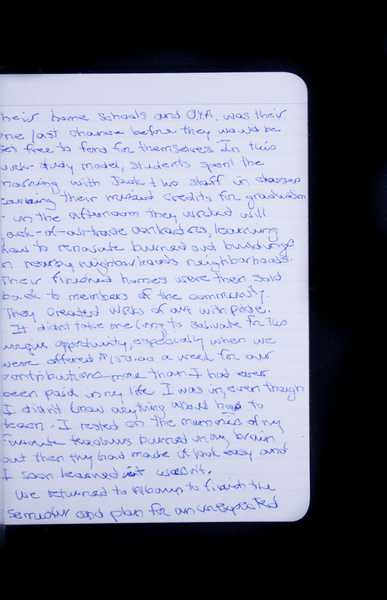 their home schools and O.Y.A. was their
one last chance before they would be
set free to fend for themselves. In this
work-study model, students spent the
morning with Jack & his staff in classes
earning their missed credits for graduation
- in the afternoon they worked with
jack-of-all-trade contractors, learning
how to renovate burned out buildings
in nearby neighborhoods neighborhoods.
Their finished homes were then sold
back to members of the community.
They created works of art with pride.
It didn't take me long to salivate for this
unique opportunity, especially when we
were offered $150.00 a week for our
contributions more than I had ever
been paid in my life. I was in, even though
I didn't know anything about how to
teach. I rested on the memories of my
favorite teachers burned in my brain
but then they had made it look easy and
I soon learned it wasn't.
We returned to Albany to finish the
semester and plan for an unexpected